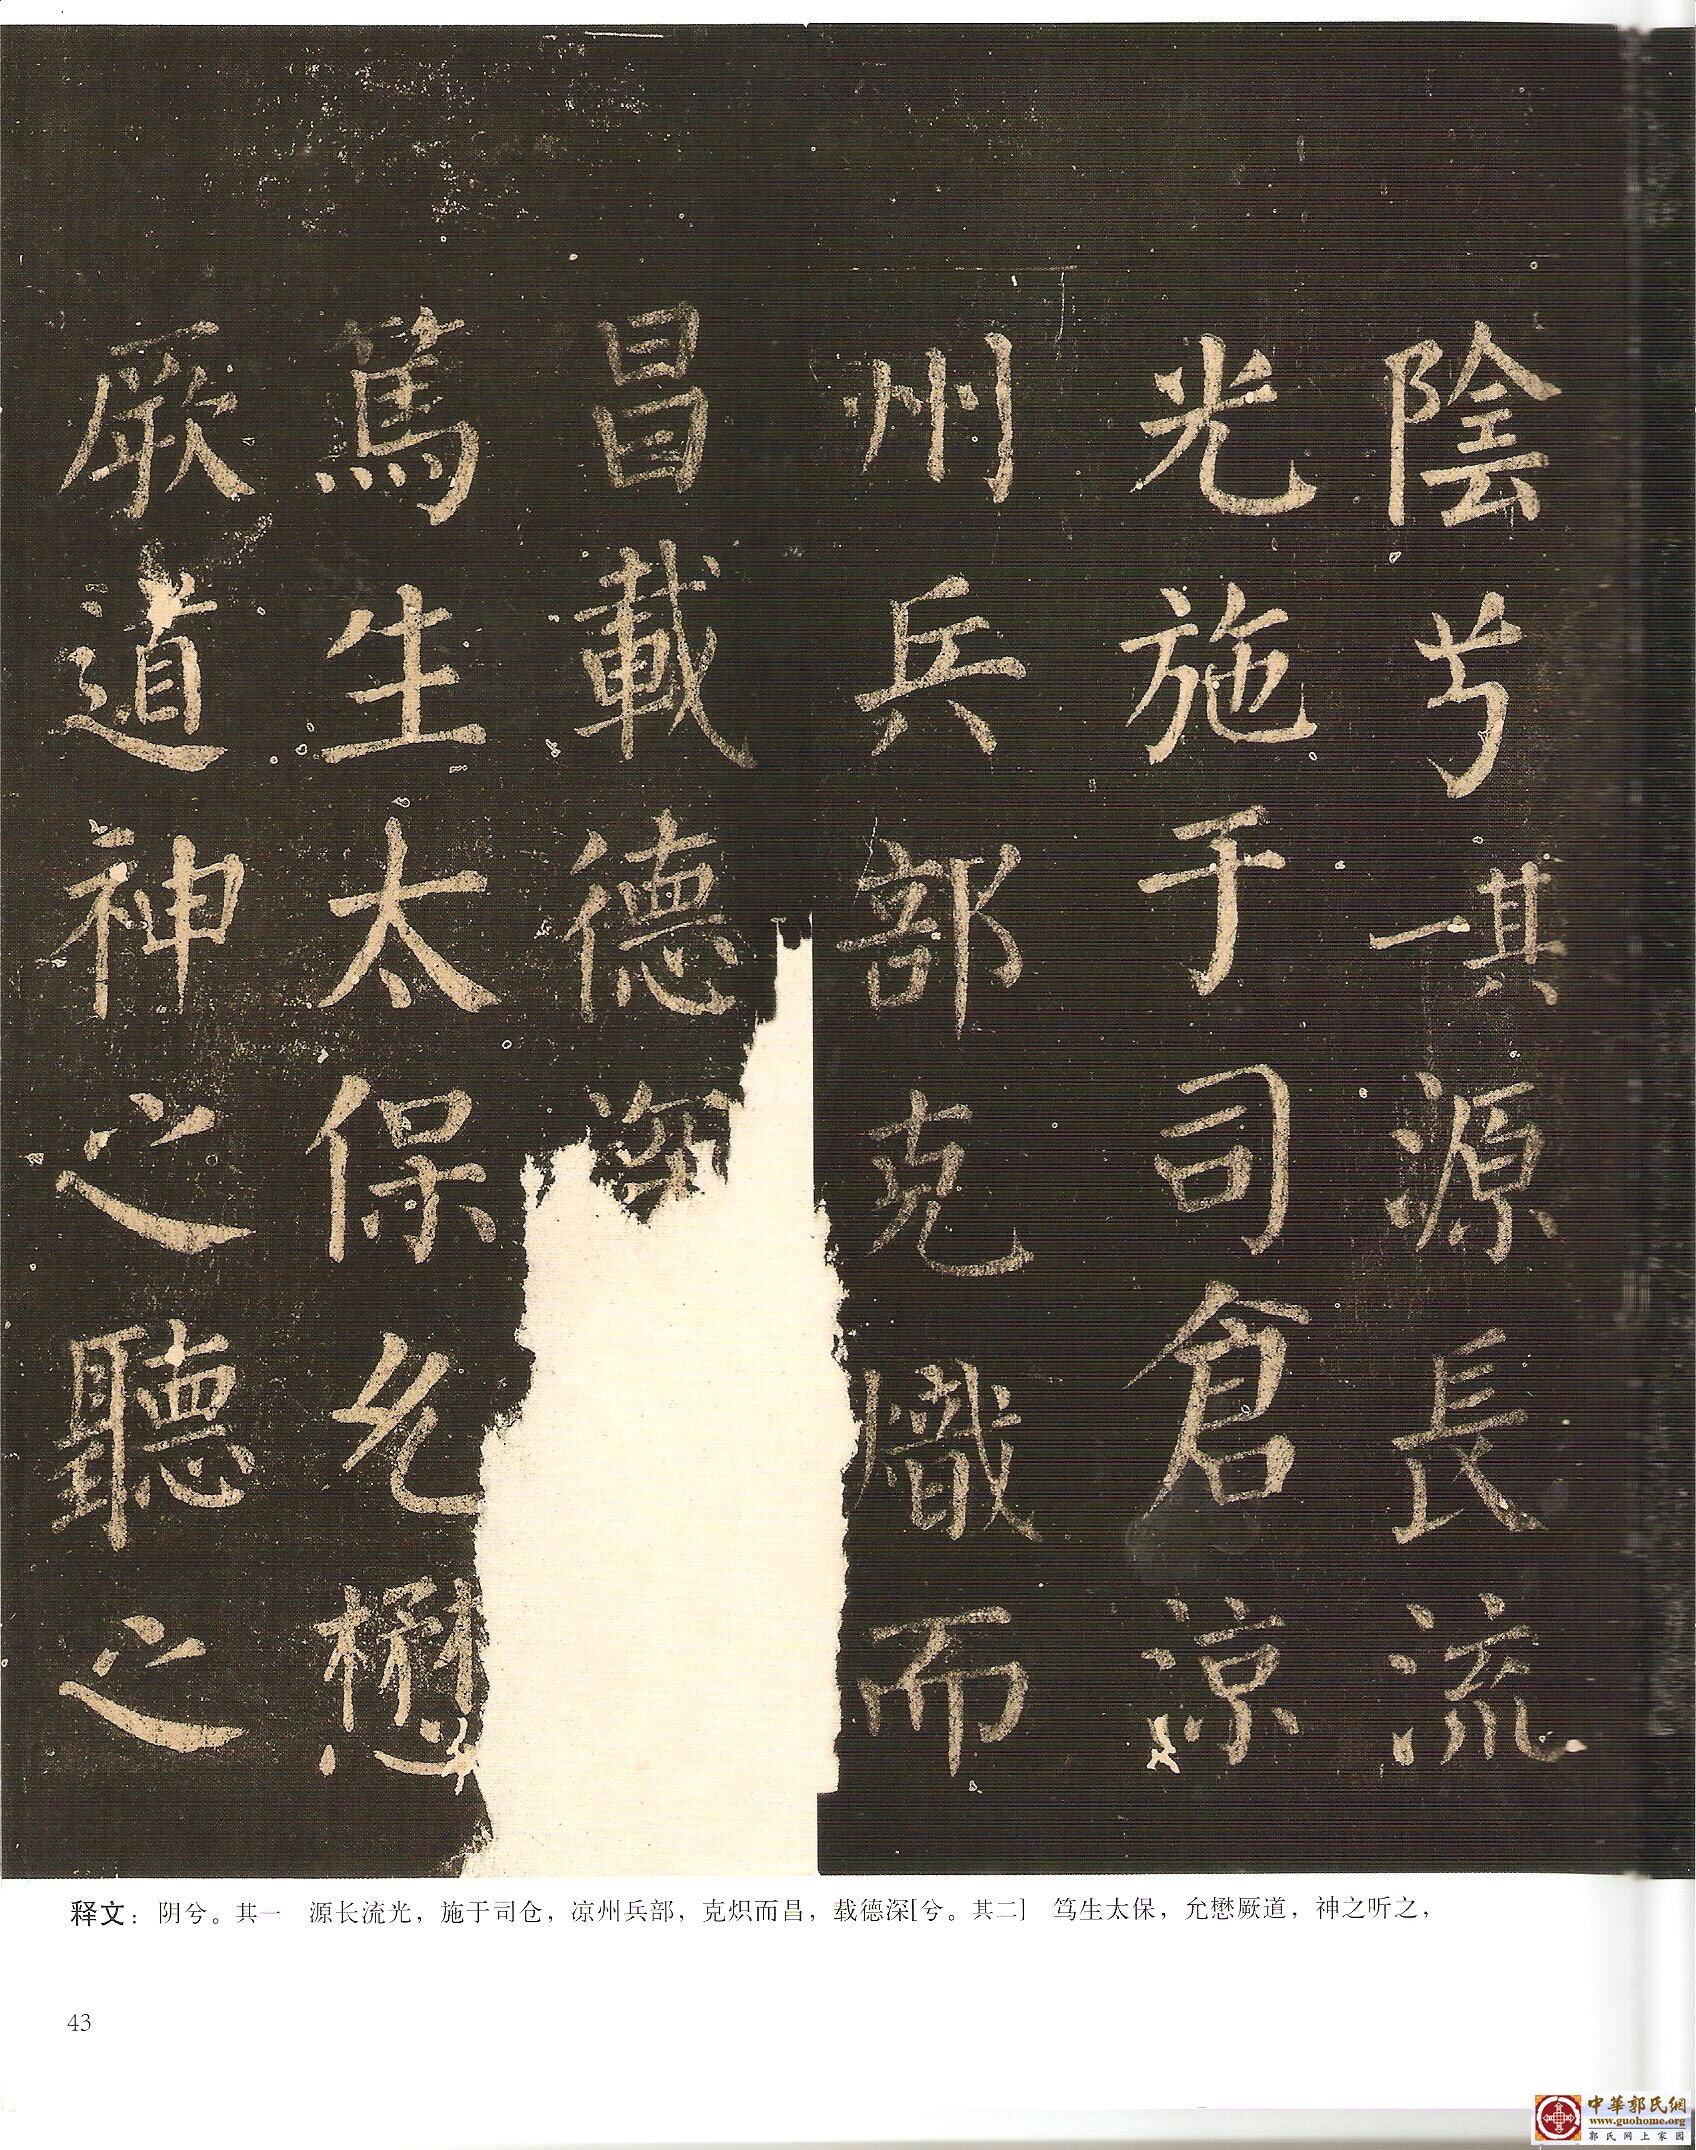 陰兮其一源長流
光施于司倉涼
州兵部克熾而
昌載德深
篤生太保允懋
厥道神之聽之
释文：阴兮。其一　源长流光，施于司仓，凉州兵部，克炽而昌，载德深[兮。其二]　笃生太保，允懋厥道，神之听之，
43
中華郭氏網
www.guohome.org
郭氏网上家园